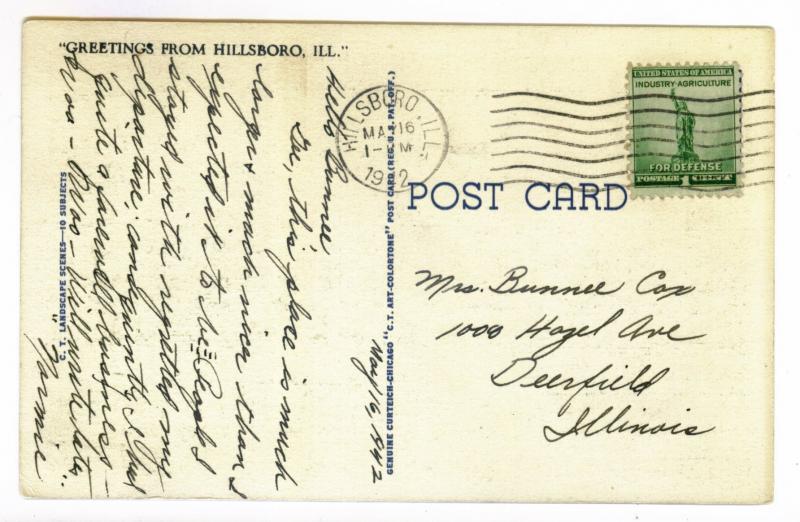 "GREETINGS FROM HILLSBORO, ILL."
Hello Bunnee
Gee, this place is much
larger & much nicer than I
expected it to be. People I
stayed with regretted my
departure. and I had
quite a farewell business –
Boo – Hoo – Will write later,
Normie
May 16, 1942
C. T. LANDSCAPE SCENES—10 SUBJECTS
GENUINE CURTEICH-CHICAGO "C. T. ART-COLORTONE" POST CARD (REG. U.S. PAT. OFF.)
HILLSBORO, ILL.
MAY 16
1- M
1942
UNITED STATES OF AMERICA
INDUSTRY·AGRICULTURE
FOR DEFENSE
POSTAGE 1 CENT
POST CARD
Mrs. Bunnee Cox
1000 Hazel Ave
Deerfield
Illinois